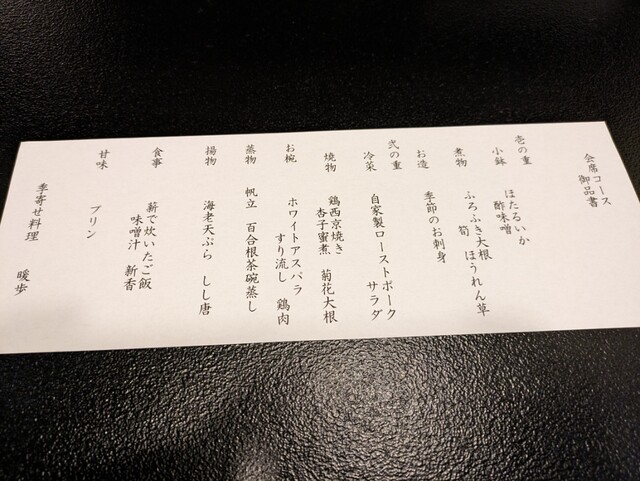 会席コース
御品書
壱の重
小鉢 ほたるいか
酢味噌
煮物 ふろふき大根
筍 ほうれん草
お造 季節のお刺身
弐の重
冷菜 自家製ローストポーク
サラダ
焼物 鶏西京焼き
杏子蜜煮 菊花大根
お椀 ホワイトアスパラ
すり流し 鶏肉
蒸物 帆立 百合根茶碗蒸し
揚物 海老天ぷら しし唐
食事 薪で炊いたご飯
味噌汁 新香
甘味 プリン
季寄せ料理 暖歩